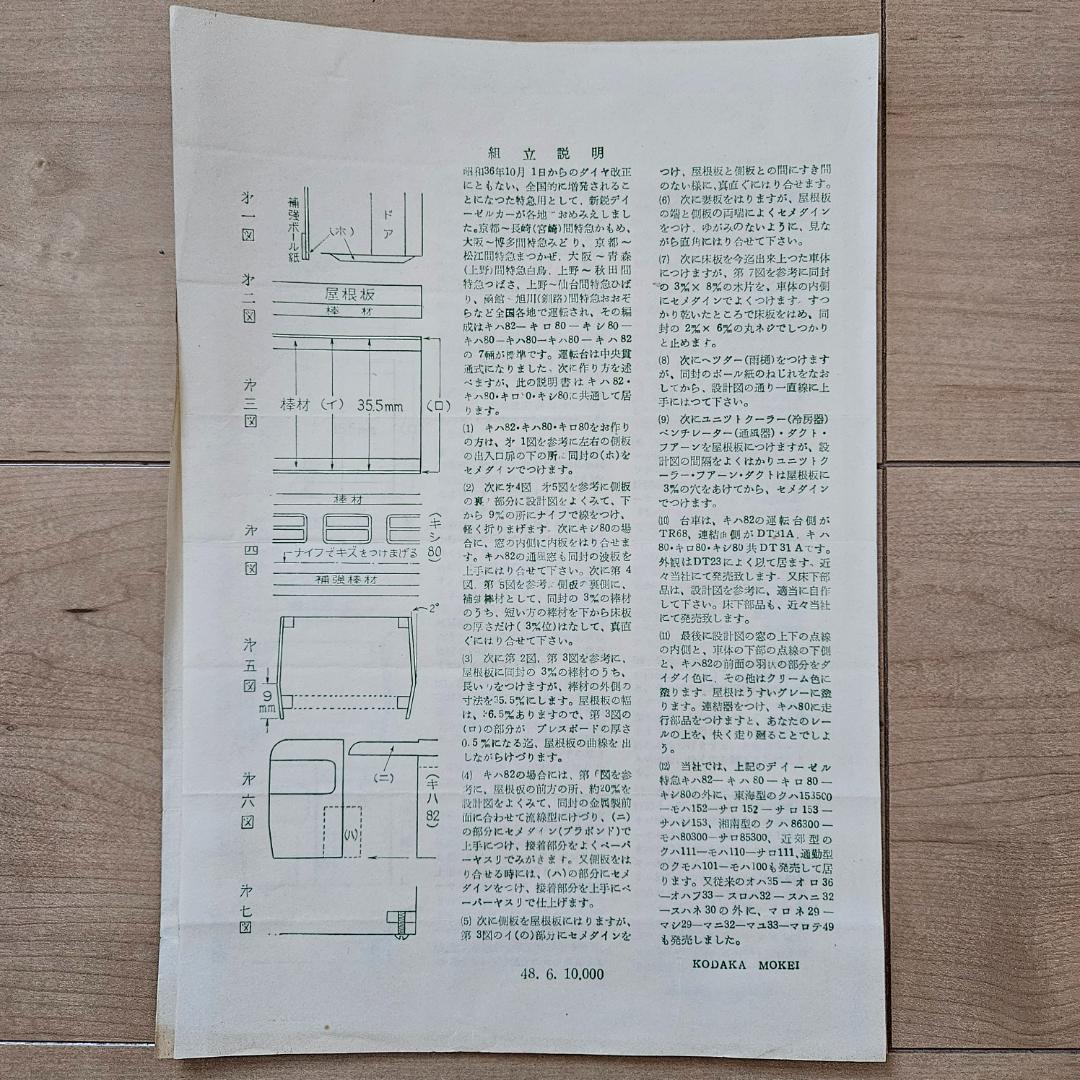 組立説明
昭和36年10月1日からのダイヤ改正
にともない、全国的に増発されるこ
とになつた特急用として、新鋭デイ
ーゼルカーが各地 おめみえしまし
た。京都〜長崎(宮崎)間特急かもめ、
大阪〜博多間特急みどり、京都〜
松江間特急まつかぜ、大阪〜青森
(上野)間特急白鳥、上野〜秋田間
特急つばさ、上野〜仙台間特急ひば
り、函館〜旭川(釧路)間特急おおぞ
らなど全国各地で運転され、その編
成はキハ82―キロ80―キシ80―
キハ80―キハ80―キハ80―キハ82
の7輌が標準です。運転台は中央貫
通式になりました。次に作り方を述
べますが、此の説明書はキハ82・
キハ80・キロ 0・キシ80に共通して居
ります。
(1) キハ82・キハ80・キロ80をお作り
の方は、才1図を参考に左右の側板
の出入口扉の下の所に同封の(ホ)を
セメダインでつけます。
(2) 次に才4図 才5図を参考に側板
の裏 部分に設計図をよくみて、下
から9%の所にナイフで線をつけ、
軽く折りまげます。次にキシ80の場
合に、窓の内側に内板をはり合せま
す。キハ82の通 窓も同封の波板を
上手にはり合せて下さい。次に第4
図、第5図を参考に側板の裏側に、
補強棒材として、同封の3%の棒材
のうち、短い方の棒材を下から床板
の厚さだけ(3%位)はなして、真直
ぐにはり合せて下さい。
(3) 次に第2図、第3図を参考に、
屋根板に同封の3%の棒材のうち、
長い をつけますが、棒材の外側の
寸法を35.5%にします。屋根板の幅
は、36.5%ありますので、第3図の
(ロ)の部分が プレスボードの厚さ
0.5%になる迄、屋根板の曲線を出
しながらけづります。
(4) キハ82の場合には、第 図を参
考に、屋根板の前方の所、約20%を
設計図をよくみて、同封の金属製前
面に合わせて流線型にけづり、(ニ)
の部分にセメダイン(プラボンド)で
上手につけ、接着部分をよくペーパ
ーヤスリでみがきます。又側板をは
り合せる時には、(ハ)の部分にセメ
ダインをつけ、接着部分を上手にペ
ーパーヤスリで仕上げます。
(5) 次に側板を屋根板にはりますが、
第3図のイ(の)部分にセメダインを
つけ、屋根板と側板との間にすき間
のない様に、真直ぐにはり合せます。
(6) 次に妻板をはりますが、屋根板
の端と側板の両端によくセメダイン
をつけ、ゆがみのないように、見な
がら直角にはり合せて下さい。
(7) 次に床板を今迄出来上つた車体
につけますが、第7図を参考に同封
の3%×8%の木片を、車体の内側
にセメダインでよくつけます。すつ
かり乾いたところで床板をはめ、同
封の2%×6%の丸ネジでしつかり
と止めます。
(8) 次にヘツダー(雨樋)をつけます
が、同封のボール紙のねじれをなお
してから、設計図の通り一直線に上
手にはつて下さい。
(9) 次にユニツトクーラー(冷房器)
ベンチレーター(通風器)・ダクト・
フアーンを屋根板につけますが、設
計図の間隔をよくはかりユニツトク
ーラー・フアーン・ダクトは屋根板に
3%の穴をあけてから、セメダイン
でつけます。
(10) 台車は、キハ82の運転台側が
TR68、連結面側がDT31A、キハ
80・キロ80・キシ80共DT31Aです。
外観はDT23によく似て居ます、近
々当社にて発売致します。又床下部
品は、設計図を参考に、適当に自作
して下さい。床下部品も、近々当社
にて発売致します。
(11) 最後に設計図の窓の上下の点線
の内側と、車体の下部の点線の下側
と、キハ82の前面の羽 の部分をダ
イダイ色に、その他はクリーム色に
塗ります。屋根はうすいグレーに塗
ります。連結器をつけ、キハ80に走
行部品をつけますと、あなたのレー
ルの上を、快く走り廻ることでしょ
う。
(12) 当社では、上記のデイーゼル
特急キハ82―キハ80―キロ80―
キシ80の外に、東海型のクハ153500
―モハ152―サロ152―サロ153―
サハシ153、湘南型のクハ86300―
モハ80300―サロ85300、近郊型の
クハ111―モハ110―サロ111、通勤型
のクモハ101―モハ100も発売して居
ります。又従来のオハ35―オロ36
―オハフ33―スロハ32―スハニ32
―スハネ30の外に、マロネ29―
マシ29―マニ32―マユ33―マロテ49
も発売しました。
48. 6. 10,000
KODAKA MOKEI
才一図
補強ボール紙
(ホ)
ドア
才二図
屋根板
棒材
才三図
棒材 (イ) 35.5mm
(ロ)
棒材
才四図
(キシ80)
ナイフでキズをつけまげる
補強棒材
才五図
2°
9mm
才六図
(ニ)
(ハ)
(キハ82)
才七図